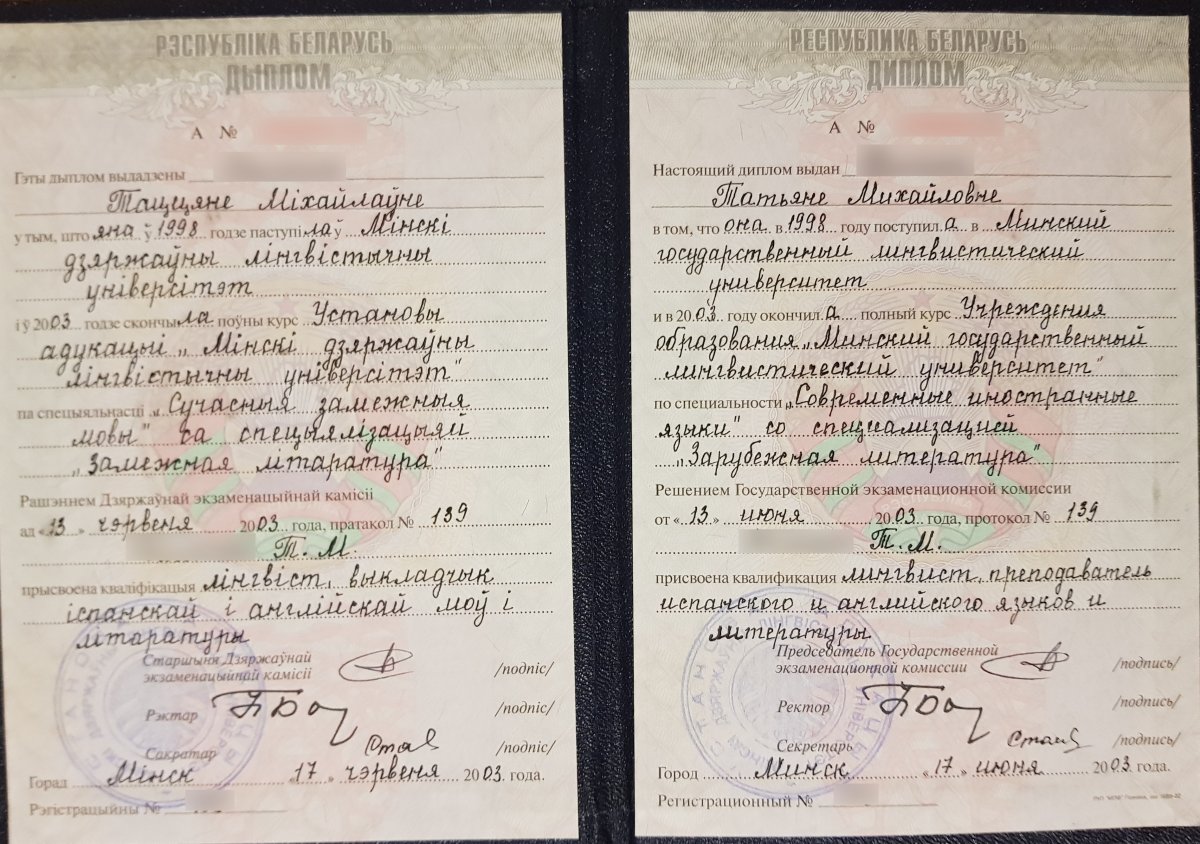 РЭСПУБЛІКА БЕЛАРУСЬ
ДЫПЛОМ
А №
Гэты дыплом выдадзены
Таццяне Міхайлаўне
у тым, што яна ў 1998 годзе паступіла ў Мінскі
дзяржаўны лінгвістычны
універсітэт
і ў 2003 годзе скончыла поўны курс Установы
адукацыі „Мінскі дзяржаўны
лінгвістычны універсітэт“
па спецыяльнасці „Сучасныя замежныя
мовы“ са спецыялізацыяй
„Замежная літаратура“
Рашэннем Дзяржаўнай экзаменацыйнай камісіі
ад «13» чэрвеня 2003 года, пратакол № 139
Т. М.
прысвоена кваліфікацыя лінгвіст, выкладчык
іспанскай і англійскай моў і
літаратуры
Старшыня Дзяржаўнай
экзаменацыйнай камісіі /подпіс/
Рэктар /подпіс/
Сакратар /подпіс/
Горад Мінск «17» чэрвеня 2003 года.
Рэгістрацыйны №
РЕСПУБЛИКА БЕЛАРУСЬ
ДИПЛОМ
А №
Настоящий диплом выдан
Татьяне Михайловне
в том, что она в 1998 году поступила в Минский
государственный лингвистический
университет
и в 2003 году окончила полный курс Учреждения
образования „Минский государственный
лингвистический университет“
по специальности „Современные иностранные
языки“ со специализацией
„Зарубежная литература“
Решением Государственной экзаменационной комиссии
от «13» июня 2003 года, протокол № 139
Т. М.
присвоена квалификация лингвист, преподаватель
испанского и английского языков и
литературы
Председатель Государственной
экзаменационной комиссии /подпись/
Ректор /подпись/
Секретарь /подпись/
Город Минск «17» июня 2003 года.
Регистрационный №